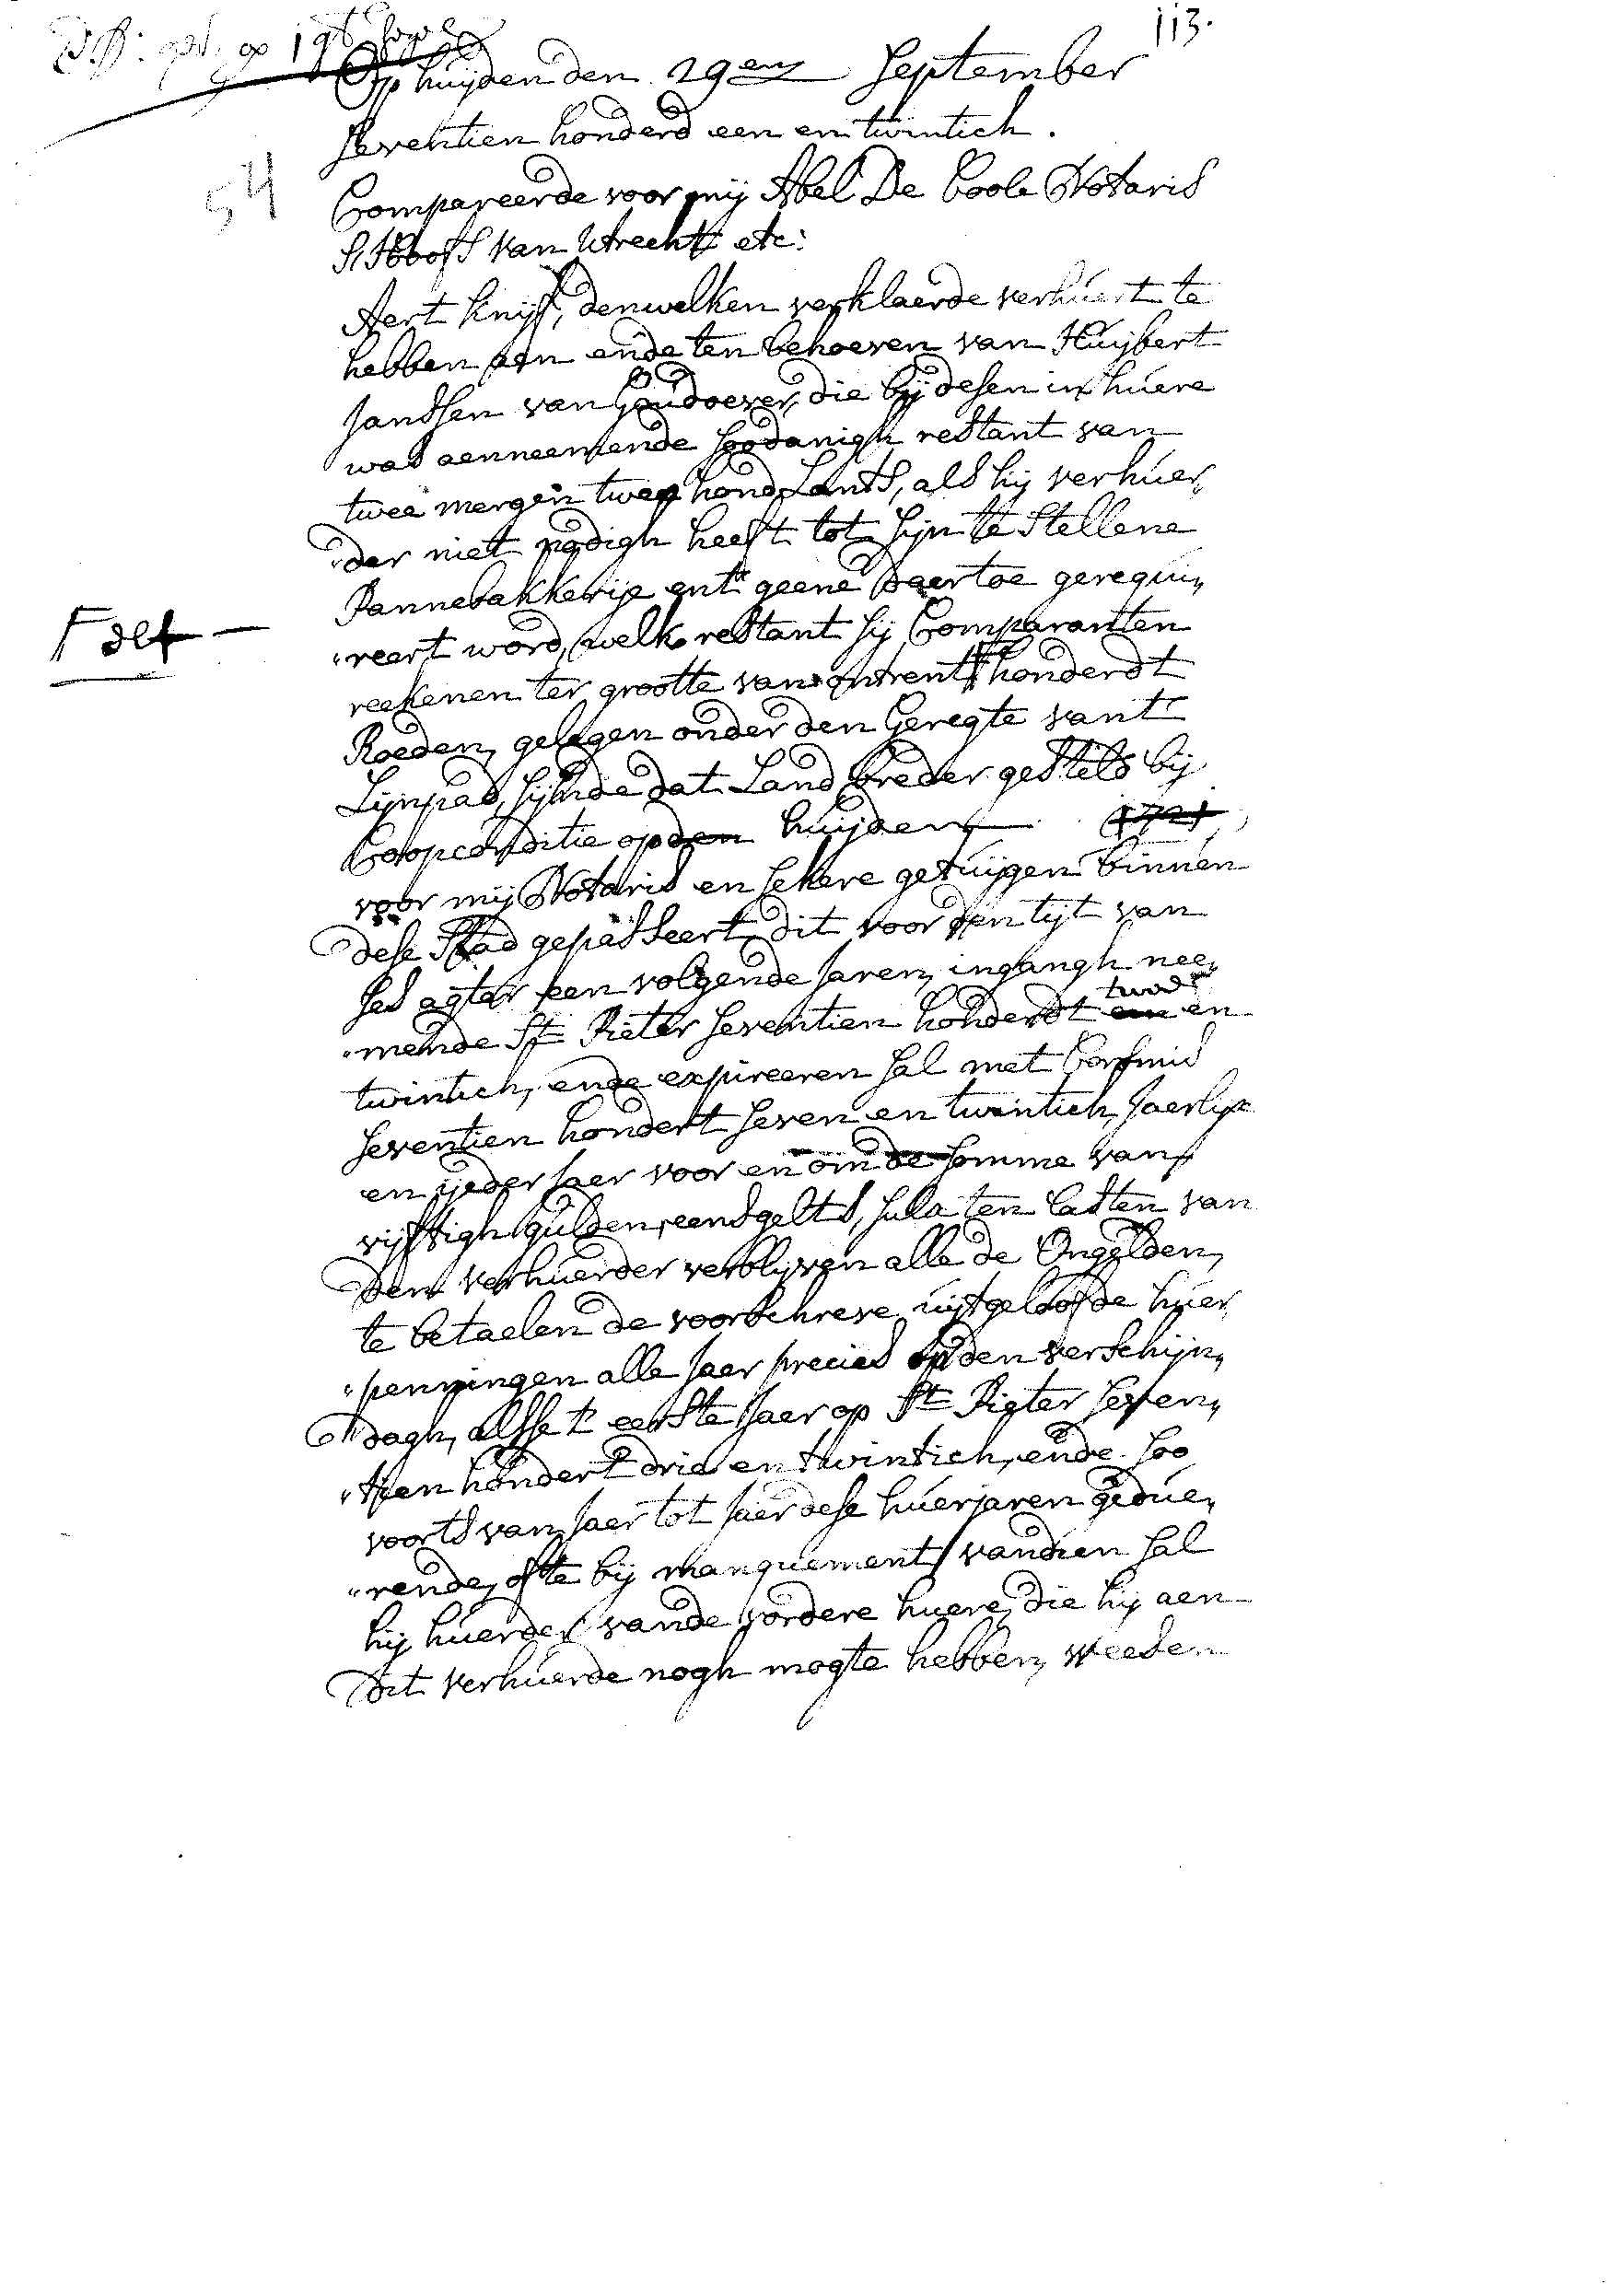 113.
Op huijden den 29en September
seventien honderd een en twintich.
54
Compareerde voor mij Abel De Coole Notaris
s'Hoofs van Utrecht etc:
Aert Knijf, denwelken verklaerde verhuert te
hebben aen ende ten behoeven van Huijbert
Jansen van Goudoever, die bij desen in huere
was aenneemende soodanigh restant van
twee mergen twee hond Lants, als hij verhuer„
„der niet nodigh heeft tot sijn te stellene
Pannebakkerije ent geene daertoe gerequi„
„reert word, welk restant sij Comparanten
reekenen ter grootte van ontrent honderdt
Roeden, gelegen onder den Geregte vant
Lijnpad, sijnde dat Land breder gestelt bij
Coopconditie op den huijden 1721
voor mij Notaris en sekere getuijgen binnen
dese Stad gepasseert, dit voor den tijt van
ses agter een volgende Jaren, ingangh nee„
twee
„mende St Pieter seventien honderdt een en
twintich, ende expireeren sal met
seventien hondert seven en twintich, Jaerlijx
en ijeder Jaer voor en om de somme van
vijftigh gulden eens gelts, sulx ten lasten van
den verhuerder verblijven alle de Ongelden,
te betaelen de voorschreve uijtgeloofde huer
„penningen alle Jaer precies op den verschijn„
dagh, alsse t eerste Jaer op St Pieter seven„
„tien hondert drie en twintich, ende soo
voorts van Jaer tot Jaer dese huerjaren gedue„
„rende, ofte bij manquement vandien sal
hij huerder vande vordere huere, die hij aen
dit verhuerde nogh mogte hebben, weesen